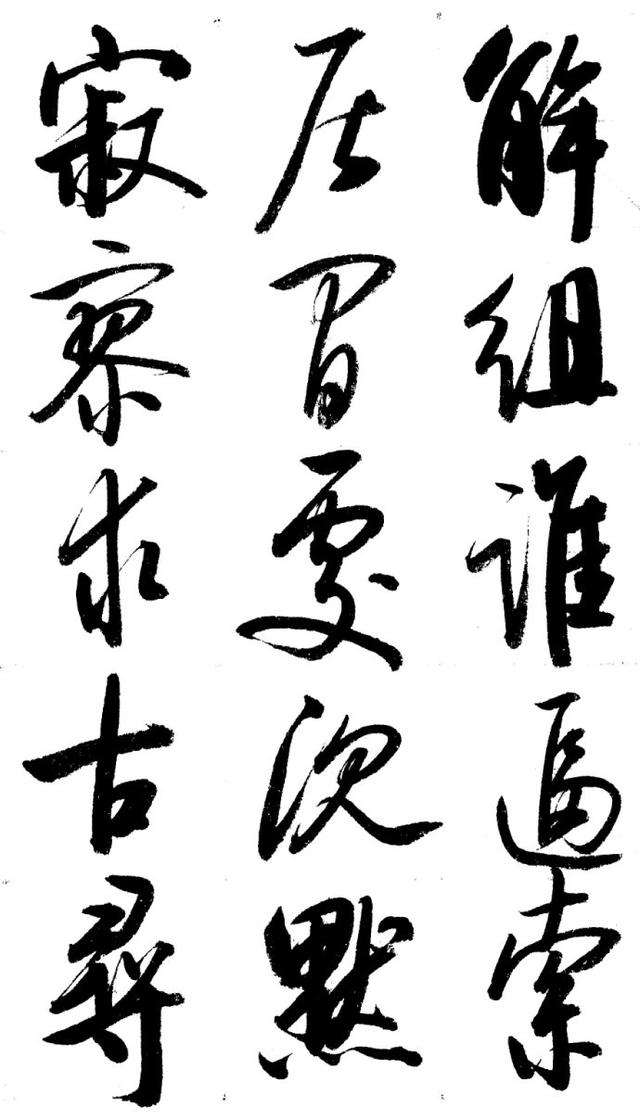 解組誰逼索
居閒處沉默
寂寥求古尋